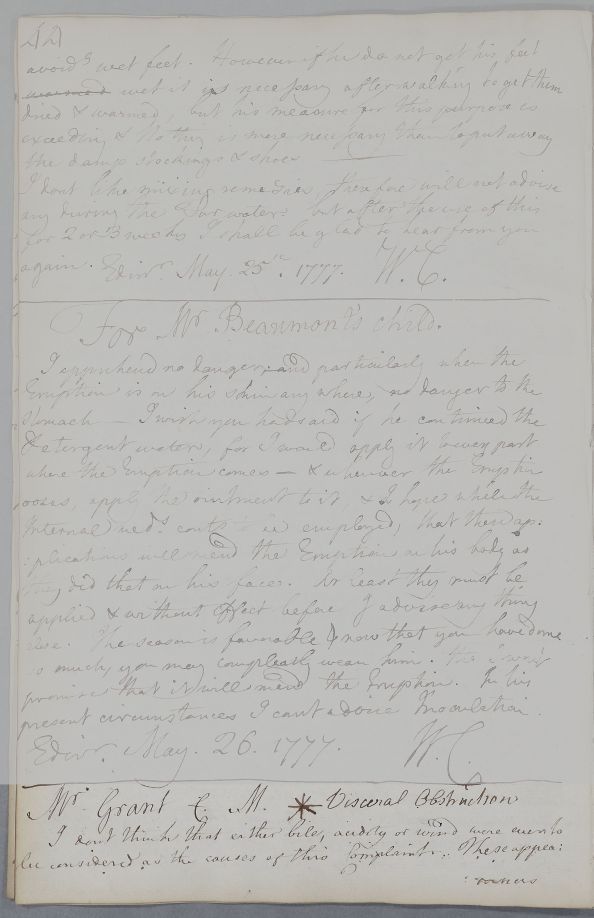 42
avoid.g wet feet. However if he do not get his feet
warmed wet it is necessary after walking to get them
dried & warmed, but his measure for this purpose is
exceeding & Nothing is more necessary than to put away
the damp stockings & shoes
I dont like mixing remedies, therefore will not advise
any during the Tar water: but after the use of this
for 2 or 3 weeks I shall be glad to hear from you
again. Edinr. May. 25th. 1777. W.C.
For Mr Beaumont's child.
I apprehend no danger, and particularly when the
Eruption is on his skin any where, no danger to the
stomach — I wish you had said if he continued the
Detergent water, for I would apply it to every part
where the Eruption comes — & whenever the Eruption
oozes, apply the ointment to it, & I hope while the
Internal meds. be employed, that these ap:
:plications will mend the Eruption on his body as
they did that on his face. At least they must be
applied & without effect before I advise any thing
else. The season is favorable & now that you have done
so much, you may compleatly wean him. tho I won't
promise that it will mend the Eruption. In his
present circumstances I cant advise Inoculation.
Edinr. May. 26. 1777. W.C.
Mr. Grant C. M. Visceral Obstruction
I don't think that either bile, acidity or wind were ever to
be considered as the causes of this Complaint. These appea:
:rances